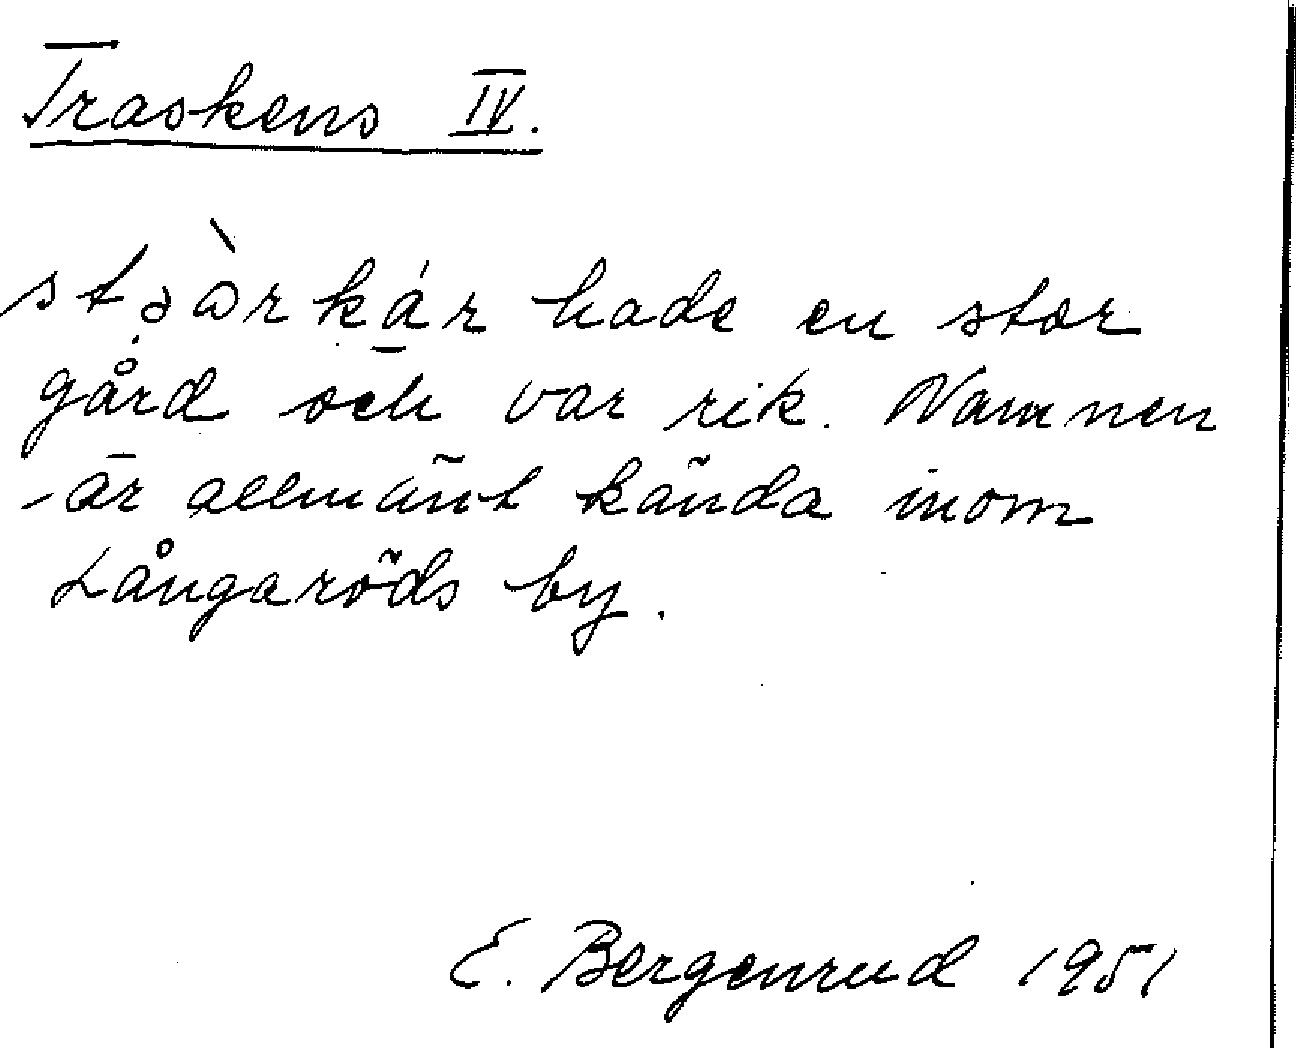 Traskens IV.
hade en stor
gård och var rik. Namnen
är allmänt kända inom
Långaröds by.
E. Bergenrud 1951